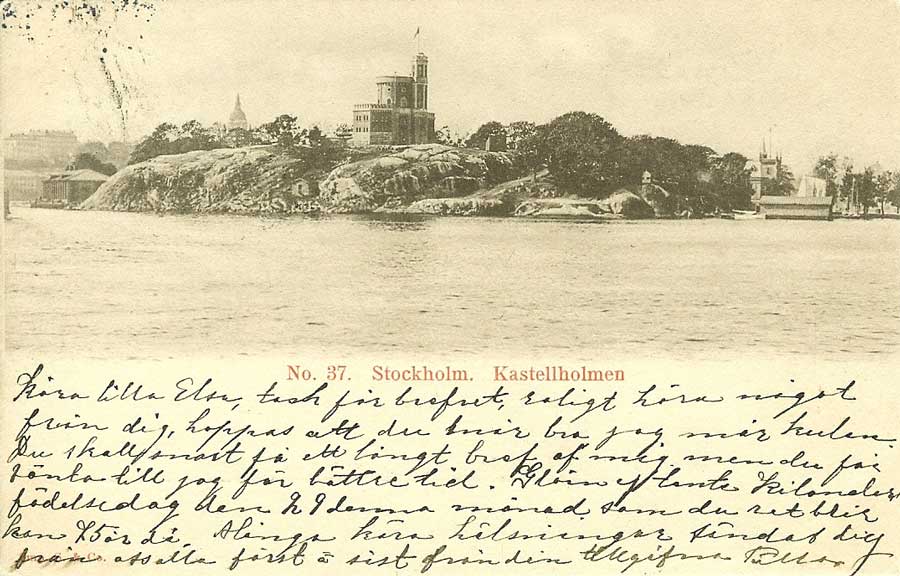 No. 37. Stockholm. Kastellholmen
Kära lilla Elsa, tack för brefvet, roligt höra något
från dig, hoppas att du mår bra jag mår kulen.
Du skall snart få ett långt bref af mig men du får
vänta till jag får bättre tid. Glöm ej tante Kilanders
födelsedag den 29 denna månad som du vet blir
hon 75 år då. Många kära hälsningar sändas dig
från oss alla först å sist från din tillgifna
& Co.